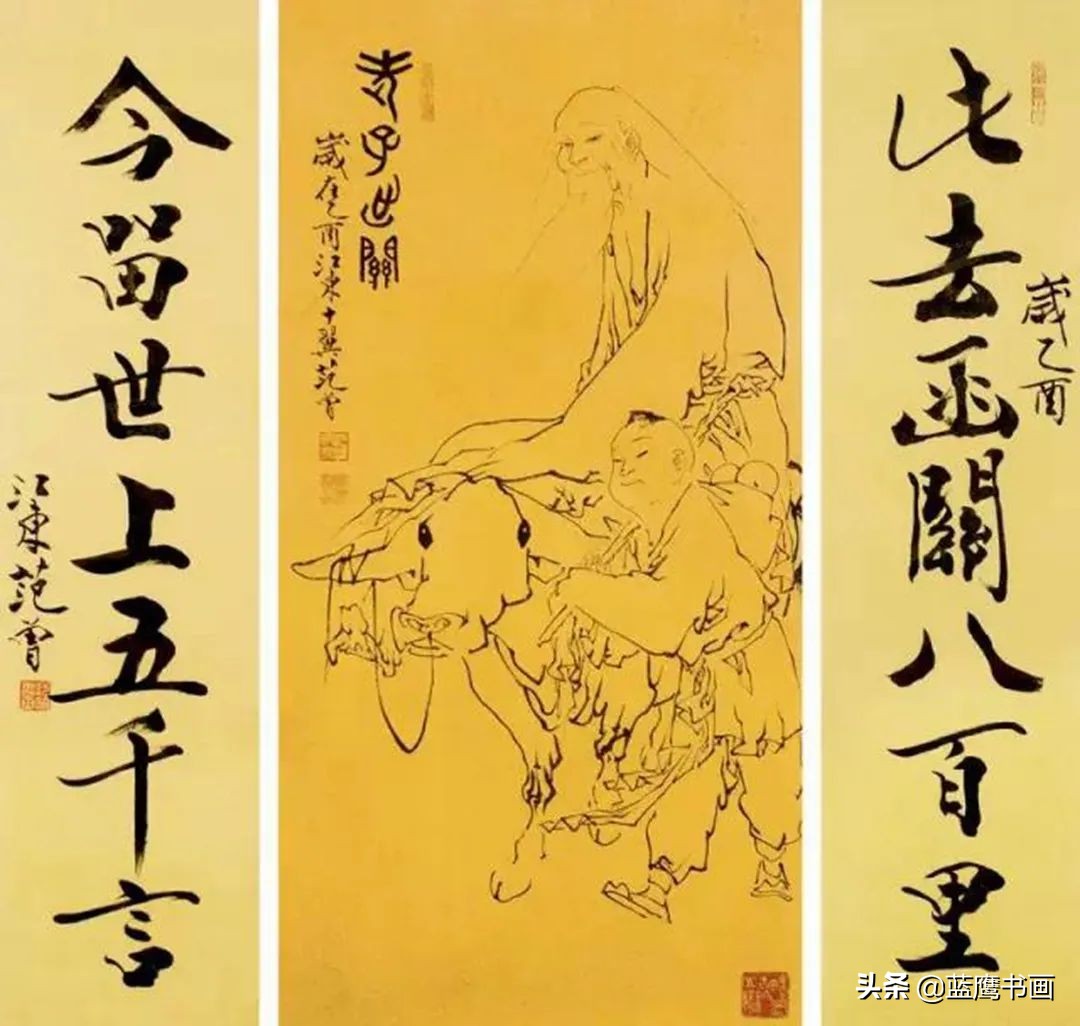 此去函關八百里
歲乙酉
老子出關
歲在乙酉江東十翼范曾
今留世上五千言
江東范曾
头条 @蓝鹰书画